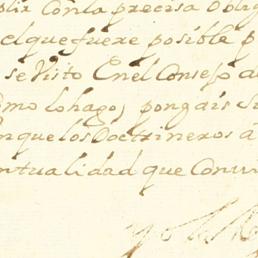 plir Con la precisa oblig
el que fuere posible p
se Visto En el Consejo de
omo lo hago, pongais su
n que los Doctrineros a
ntualidad que Conv
Yo el Rey